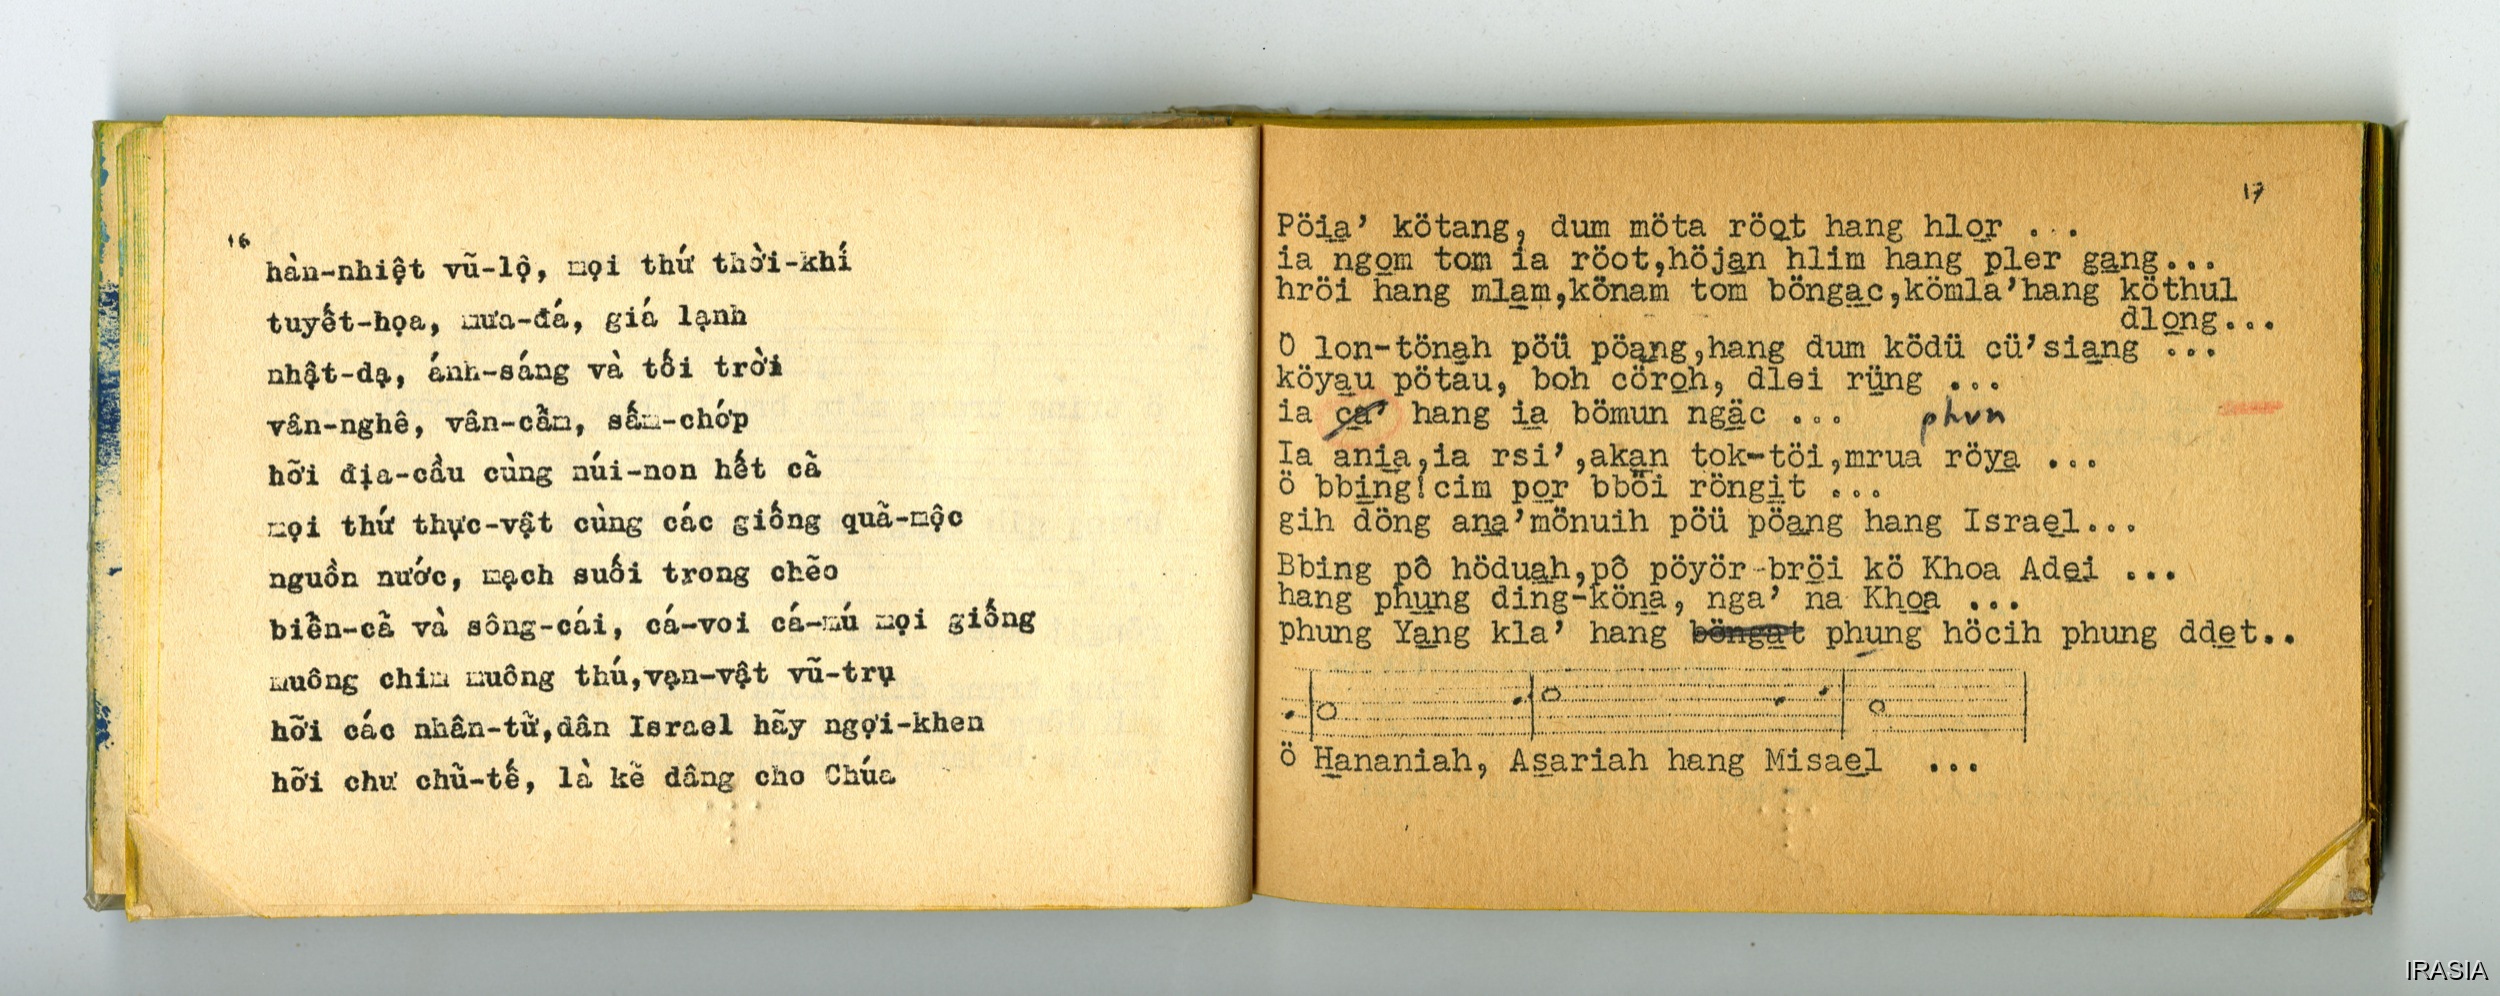 16
hàn-nhiệt vũ-lộ, mọi thứ thời-khí
tuyết-họa, mưa-đá, giá lạnh
nhật-dạ, ánh-sáng và tối trời
vân-nghê, vân-cẩm, sấm-chớp
hỡi địa-cầu cùng núi-non hết cả
mọi thứ thực-vật cùng các giống quả-mộc
nguồn nước, mạch suối trong chẽo
biển-cả và sông-cái, cá-voi cá-mú mọi giống
muông chim muông thú,vạn-vật vũ-trụ
hỡi các nhân-tử,dân Israel hãy ngợi-khen
hỡi chư chủ-tế, là kẻ dâng cho Chúa
17
Pöia' kötang, dum möta röot hang hlor ...
ia ngom tom ia röot,höjan hlim hang pler gang...
hröi hang mlam,könam tom böngac,kömla'hang köthul
dlong...
Ö lon-tönah pöü pöang,hang dum ködü cü'siang ...
köyau pötau, boh cöroh, dlei rüng ...
ia ca' hang ia bömun ngäc ... phun
Ia ania,ia rsi',akan tok-töi,mrua röya ...
ö bbing!cim por bböi röngit ...
gih döng ana'mönuih pöü pöang hang Israel...
Bbing pô höduah,pô pöyör-bröi kö Khoa Adei ...
hang phung ding-köna, nga' na Khoa ...
phung Yang kla' hang böngat phung höcih phung ddet..
ö Hananiah, Asariah hang Misael ...
IRASIA